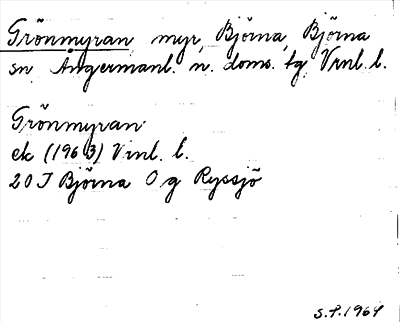 Grönmyran myr, Björna, Björna
sn Ångermanl. n. doms. tg Vrnl. l.
Grönmyran
ek (1963) Vrnl. l.
20 J Björna O g Ryssjö
S.F. 1964